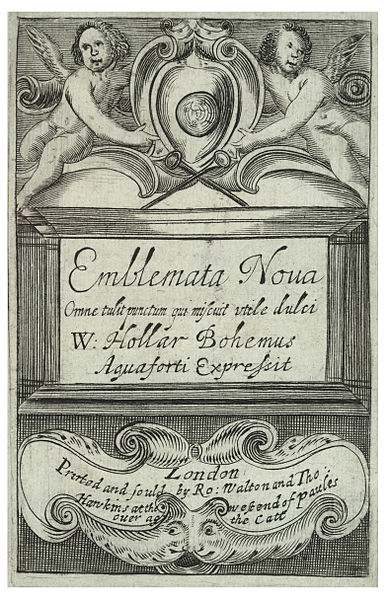 Emblemata Noua
Omne tulit punctum qui miscuit vtile dulci
W: Hollar Bohemus
Aquaforti Expressit
London
Printed and sould by Ro: Walton and Tho
Hawkins at the west end of Paules
ouer the Catt